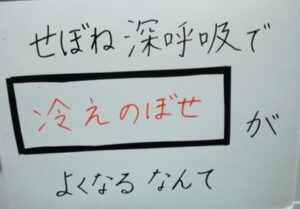 せぼね深呼吸で
冷えのぼせ が
よくなる なんて